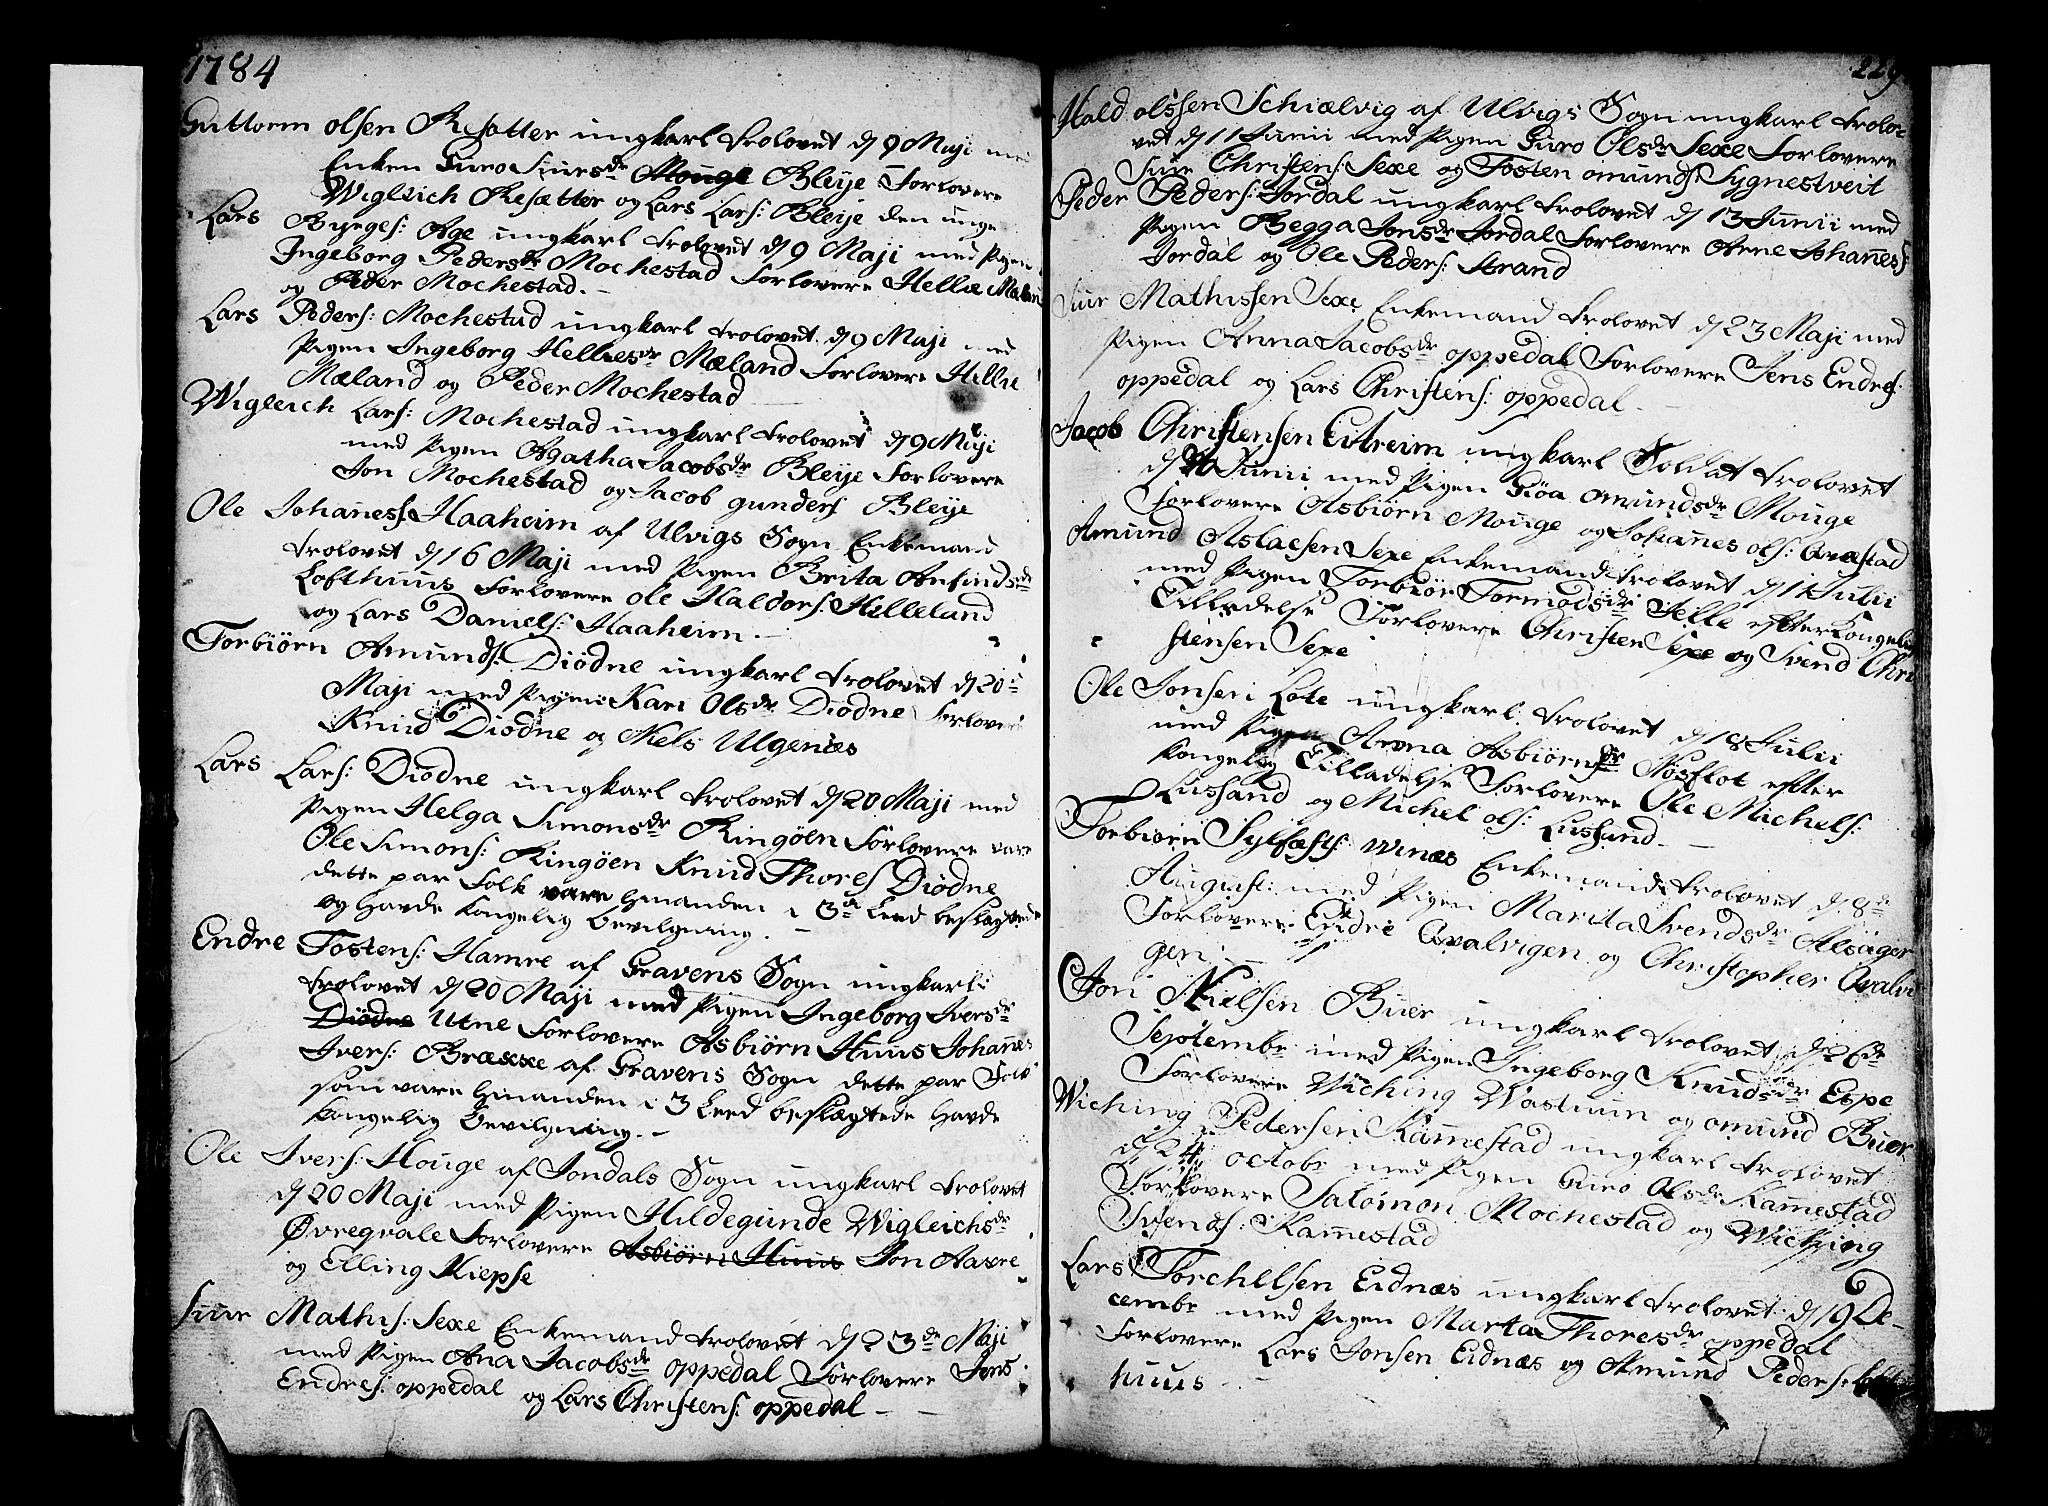 1784
Guttorm olsen Resatter ungkarl trolovet d 9 Maji med
Enken Guro Siursdr Mouge Bleije Forlovere
Wigleich Resætter og Lars Lars: Bleije den unge
Lars Byrges: Age ungkarl trolovet d 9 Maji med Pigen
Ingeborg Pedersdr Mochestad Forlovere Hellie Mæland
og Peder Mochestad.-
Lars Peders: Mochestad ungkarl trolovet d 9 Maji med
Pigen Ingeborg Helliesdr Mæland Forlovere Hellie
Mæland og Peder Mochestad
Wigleich Lars: Mochestad ungkarl trolovet d 9 Maji
med Pigen Agatha Jacobsdr Bleije Forlovere
Jon Mochestad og Jacob gunders Bleije
Ole Johaness: Haaheim af Ulvigs Sogn Enkemand
trolovet d 16 Maji med Pigen Brita Anfindsdr
Lofthuus Forlovere Ole Haldors: Hilleland
og Lars Daniels: Haaheim.-
Torbiørn Amunds: Diødne ungkarl trolovet d 20
Maji med Pigen Kari Olsdr Diødne Forlovere
Knud Diødne og Niels Ulgenæs
Lars Lars: Diødne ungkarl trolovet d 20 Maji med
Pigen Helga Simonsdr Ringøen Forlovere vare
Ole Simons: Ringøen Knud Thores Diødne
dette par Folk vare hinanden i 3d Leed beslægtede
og havde Kongelig Bevilgning.-
Endre Tostens: Hamre af Gravens Sogn ungkarl
trolovet d 20 Maji med Pigen Ingeborg Iversdr
Diødne Utne Forlovere Asbiørn Huus Johanes
Ivers: Bræxxe af Gravens Sogn dette par Folk
som vare hinanden i 3 Leed beslægtede havde
Kongelig Bevilgning.-
Ole Ivers: Houge af Jondals Sogn ungkarl trolovet
d 20 Maji med Pigen Hildegunde Wigleichsdr
Øvreqvale Forlovere Asbiørn Huus Jon Aaxre
og Elling Kiepse
Siur Mathis: Sexe Enkemand trolovet d 23de Maji
med Pigen Ana Jacobsdr oppedal Forlovere Jens
Endres: oppedal og Lars Christens: oppedal -
229
Hald olssen Schiælvig af Ulvigs Sogn ungkarl trolo-
vet d 11 Junii med Pigen Guro Olsdr Sexe Forlovere
Siur Christens: Sexe og Tosten omunds: Sygnestveit
Peder Peders: Jordal ungkarl trolovet d 13 Junii med
Pigen Begga Jonsdr Jordal Forlovere Arne Johaness
Jordal og Ole Peders: Strand
Siur Mathissen Sexe Enkemand trolovet d 23 Maji med
Pigen Anna Jacobsdr oppedal Forlovere Jens Endres:
oppedal og Lars Christens: oppedal -
Jacob Christensen Eitreim ungkarl Soldat trolovet
d Junii med Pigen Giøa omundsdr Mouge
Forlovere Asbiørn Mouge og Johannes ols: Qvæstad
Amund Aslacsen Sexe Enkemand trolovet d 1 Julii
med Pigen Torbiør Tormodsdr Jelle efter Kongelig
Tilladelse Forlovere Christen Sexe og Svend Chri
stensen Sexe
Ole Jonsen Lote ungkarl trolovet d 18 Julii
med Pigen Anna Asbiørnsdr Nøsflot efter
Kongelig Tilladelse Forlovere Ole Michels:
Lussand og Michel ols: Lussand.-
Torbiørn Sylfæsts: Winæs Enkemand trolovet d 8de
August: med Pigen Marita Svendsdr Alsager
Forlovere Endre Qvalvigen og Christopher Qvalvi
gen.-
Jon Nielsen Buer ungkarl trolovet d 26de
Septembr med Pigen Ingeborg Knudsdr Espe
Forlovere Wiching Wastuun og omund Buer
Wiching Pedersen Kamestad ungkarl trolovet
d 24 octobr med Pigen Guro Olsdr Kamestad
Forlovere Salomon Mochestad og Wiching
Svends: Kamestad
Lars Torchelsen Eidnæs ungkarl trolovet d 19 De-
cembr med Pigen Marta Thoresdr oppedal
Forlovere Lars Jonsen Eidnæs og Amund Peders: Loft
huus